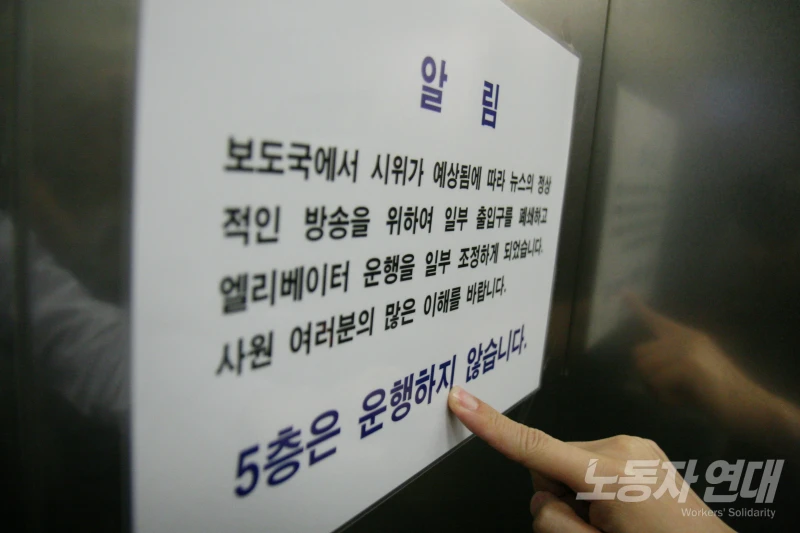 알 림
보도국에서 시위가 예상됨에 따라 뉴스의 정상
적인 방송을 위하여 일부 출입구를 폐쇄하고
엘리베이터 운행을 일부 조정하게 되었습니다.
사원 여러분의 많은 이해를 바랍니다.
5층은 운행하지 않습니다.
노동자 연대
Workers' Solidarity